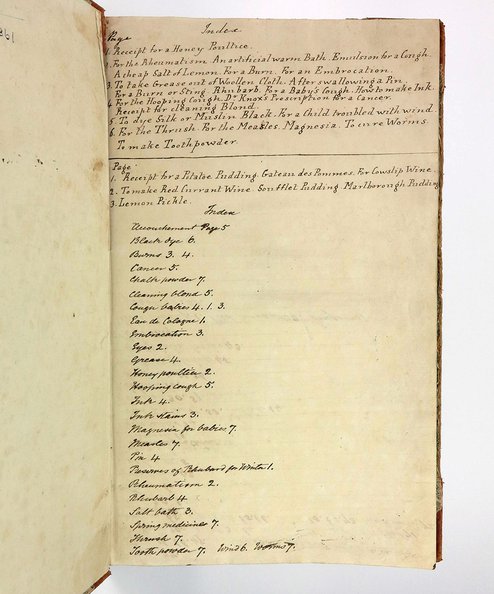 861
Index
Page
1. Receipt for a Honey Poultice.
2. For the Rheumatism. An artificial warm Bath. Emulsion for a Cough.
A cheap Salt of Lemon. For a Burn. For an Embrocation.
3. To take Grease out of Woollen Cloth. After swallowing a Pin.
For a Burn or Sting. Rhubarb. For a Baby's Cough. How to make Ink.
4. For the Hooping Cough. Dr Knox's Prescription for a Cancer.
Receipt for cleaning Blond.
5. To dye Silk or Muslin Black. For a Child troubled with wind.
6. For the Thrush. For the Measles. Magnesia. To cure Worms.
To make Toothpowder.
Page
1. Receipt for a Potatoe Pudding. Gateau des Pommes. For Cowslip Wine.
2. To make Red Currant Wine. Soufflet Pudding. Marlborough Pudding
3. Lemon Pickle.
Index
Accouchement Page 5
Black dye 6.
Burns 3. 4.
Cancer 5.
Chalk powder 7.
Cleaning blond 5.
Cough babies 4. 1. 3.
Eau de Cologne 1.
Embrocation 3.
Eyes 2.
Grease 4.
Honey poultice 2.
Hooping cough 5.
Ink 4.
Ink stains 3.
Magnesia for babies 7.
Measles 7.
Pin 4
Preserves of Rhubard for Winter 1.
Rheumatism 2.
Rhubarb 4
Salt bath 3.
Spring medicines 7.
Thrush 7.
Tooth powder 7. Wind 6. Worms 7.